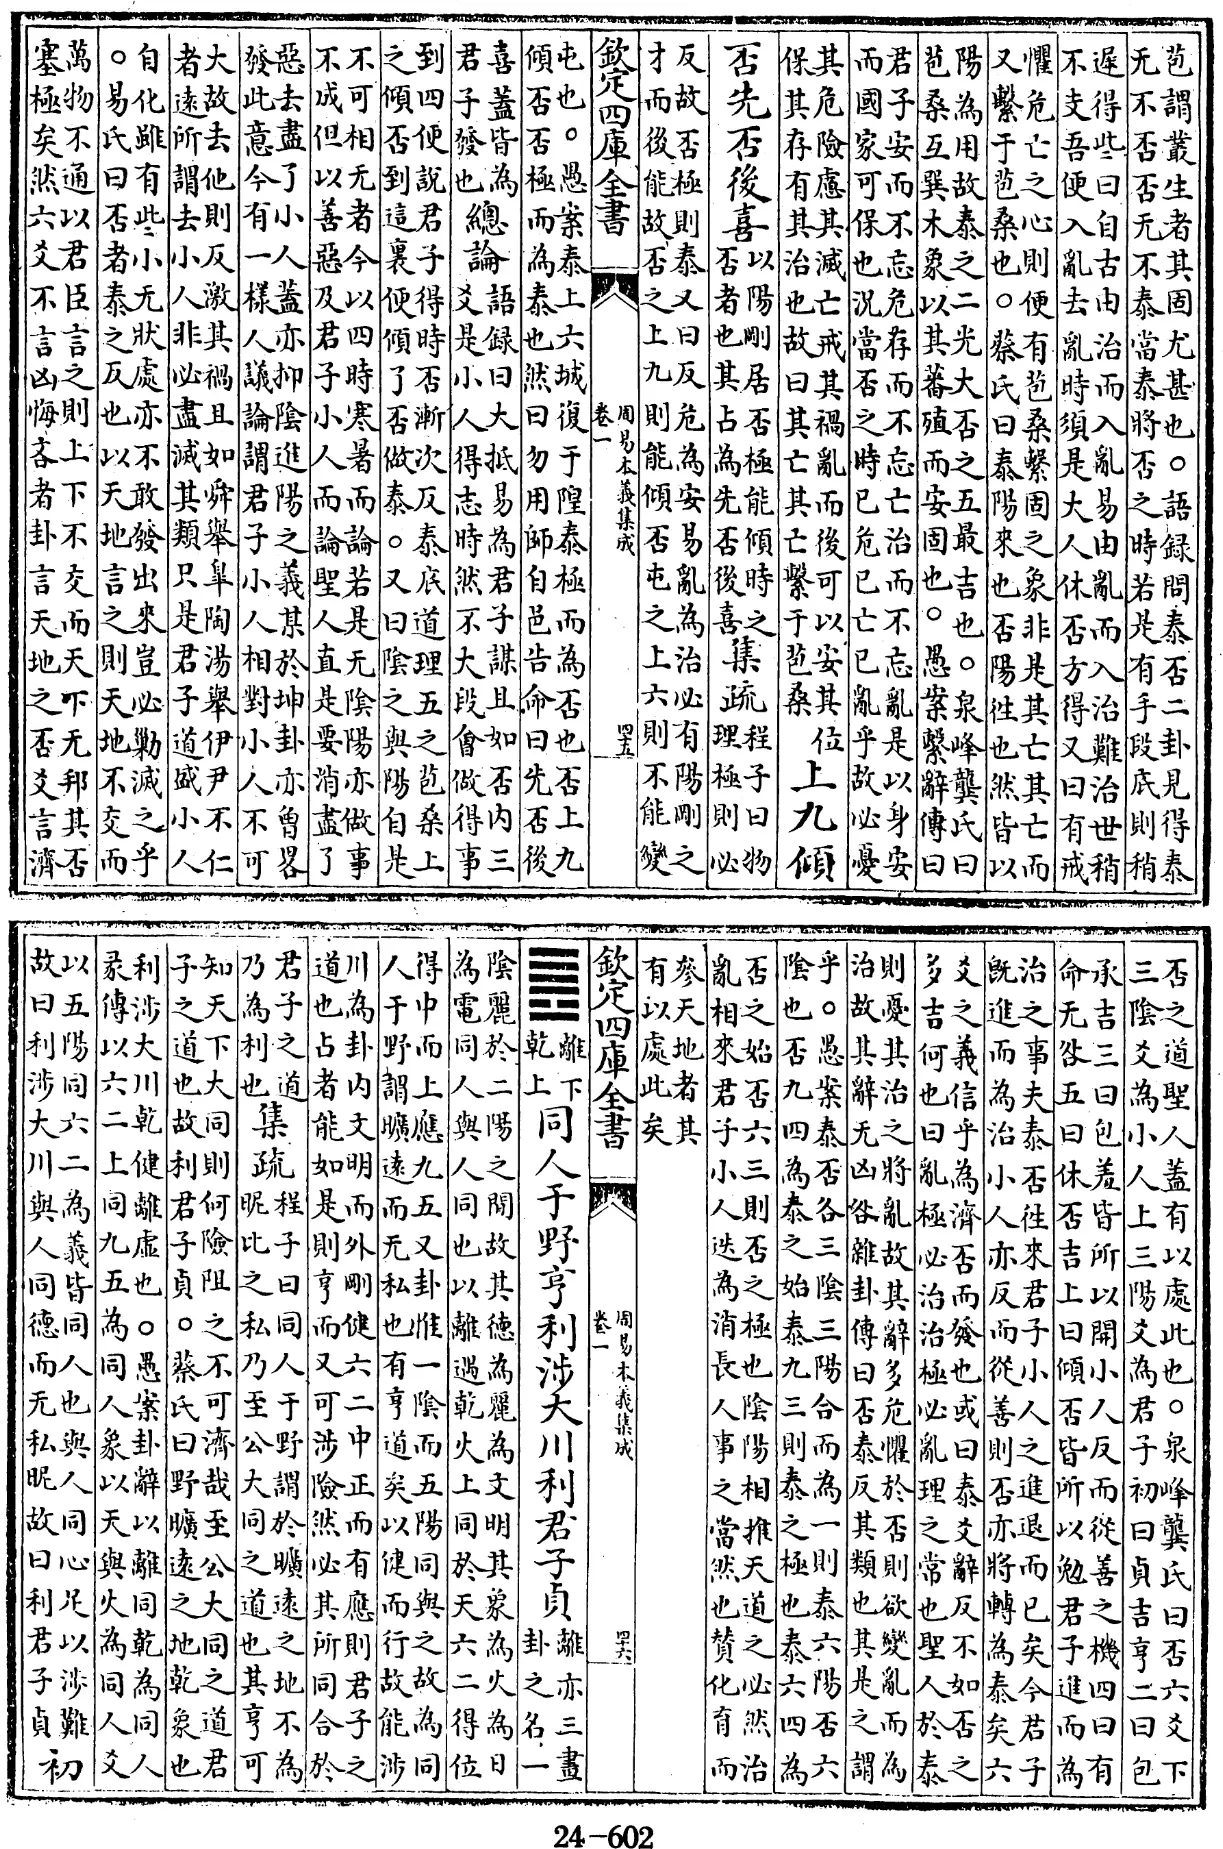 苞謂叢生者其固尤甚也○語録問泰否二卦見得泰
无不否否无不泰當泰將否之時若是有手段底則稍
遲得些曰自古由治而入亂易由亂而入治難治世稍
不支吾便入亂去亂時須是大人休否方得又曰有戒
懼危亡之心則便有苞桑繫固之象非是其亡其亡而
又繫于苞桑也○蔡氏曰泰陽來也否陽徃也然皆以
陽為用故泰之二光大否之五最吉也○泉峰龔氏曰
苞桑互巽木象以其蕃殖而安固也○愚案繫辭傳曰
君子安而不忘危存而不忘亡治而不忘亂是以身安
而國家可保也況當否之時已危已亡已亂乎故必憂
其危險慮其滅亡戒其禍亂而後可以安其位
保其存有其治也故曰其亡其亡繫于苞桑
上九傾
否先否後喜
以陽剛居否極能傾時之
否者也其占為先否後喜
集疏
程子曰物
理極則必
反故否極則泰又曰反危為安易亂為治必有陽剛之
才而後能故否之上九則能傾否屯之上六則不能變
欽定四庫全書
周易本義集成
卷一
四五
屯也○愚案泰上六城復于隍泰極而為否也否上九
傾否否極而為泰也然曰勿用師自邑告命曰先否後
喜蓋皆為
君子發也
總論
語録曰大抵易為君子謀且如否内三
爻是小人得志時然不大段會做得事
到四便說君子得時否漸次反泰底道理五之苞桑上
之傾否到這裏便傾了否做泰○又曰陰之與陽自是
不可相无者今以四時寒暑而論若是无陰陽亦做事
不成但以善惡及君子小人而論聖人直是要消盡了
惡去盡了小人蓋亦抑陰進陽之義某於坤卦亦曾畧
發此意今有一樣人議論謂君子小人相對小人不可
大故去他則反激其禍且如舜舉臯陶湯舉伊尹不仁
者遠所謂去小人非必盡滅其類只是君子道盛小人
自化雖有些小无狀處亦不敢發出來豈必勦滅之乎
○易氏曰否者泰之反也以天地言之則天地不交而
萬物不通以君臣言之則上下不交而天下无邦其否
塞極矣然六爻不言凶悔吝者卦言天地之否爻言濟
否之道聖人蓋有以處此也○泉峰龔氏曰否六爻下
三陰爻為小人上三陽爻為君子初曰貞吉亨二曰包
承吉三曰包羞皆所以開小人反而從善之機四曰有
命无咎五曰休否吉上曰傾否皆所以勉君子進而為
治之事夫泰否徃來君子小人之進退而已矣今君子
既進而為治小人亦反而從善則否亦將轉為泰矣六
爻之義信乎為濟否而發也或曰泰爻辭反不如否之
多吉何也曰亂極必治治極必亂理之常也聖人於泰
則憂其治之將亂故其辭多危懼於否則欲變亂而為
治故其辭无凶咎雜卦傳曰否泰反其類也其是之謂
乎○愚案泰否各三陰三陽合而為一則泰六陽否六
陰也否九四為泰之始泰九三則泰之極也泰六四為
否之始否六三則否之極也陰陽相推天道之必然治
亂相來君子小人迭為消長人事之當然也賛化育而
參天地者其
有以處此矣
欽定四庫全書
周易本義集成
卷一
四六
離下
乾上
同人于野亨利涉大川利君子貞
離亦三畫
卦之名一
陰麗於二陽之間故其德為麗為文明其象為火為日
為電同人與人同也以離遇乾火上同於天六二得位
得中而上應九五又卦惟一陰而五陽同與之故為同
人于野謂曠遠而无私也有亨道矣以健而行故能涉
川為卦内文明而外剛健六二中正而有應則君子之
道也占者能如是則亨而又可涉險然必其所同合於
君子之道
乃為利也
集疏
程子曰同人于野謂於曠遠之地不為
昵比之私乃至公大同之道也其亨可
知天下大同則何險阻之不可濟哉至公大同之道君
子之道也故利君子貞○蔡氏曰野曠遠之地乾象也
利涉大川乾健離虛也○愚案卦辭以離同乾為同人
彖傳以六二上同九五為同人象以天與火為同人爻
以五陽同六二為義皆同人也與人同心足以涉難
故曰利涉大川與人同德而无私昵故曰利君子貞
初
24-602